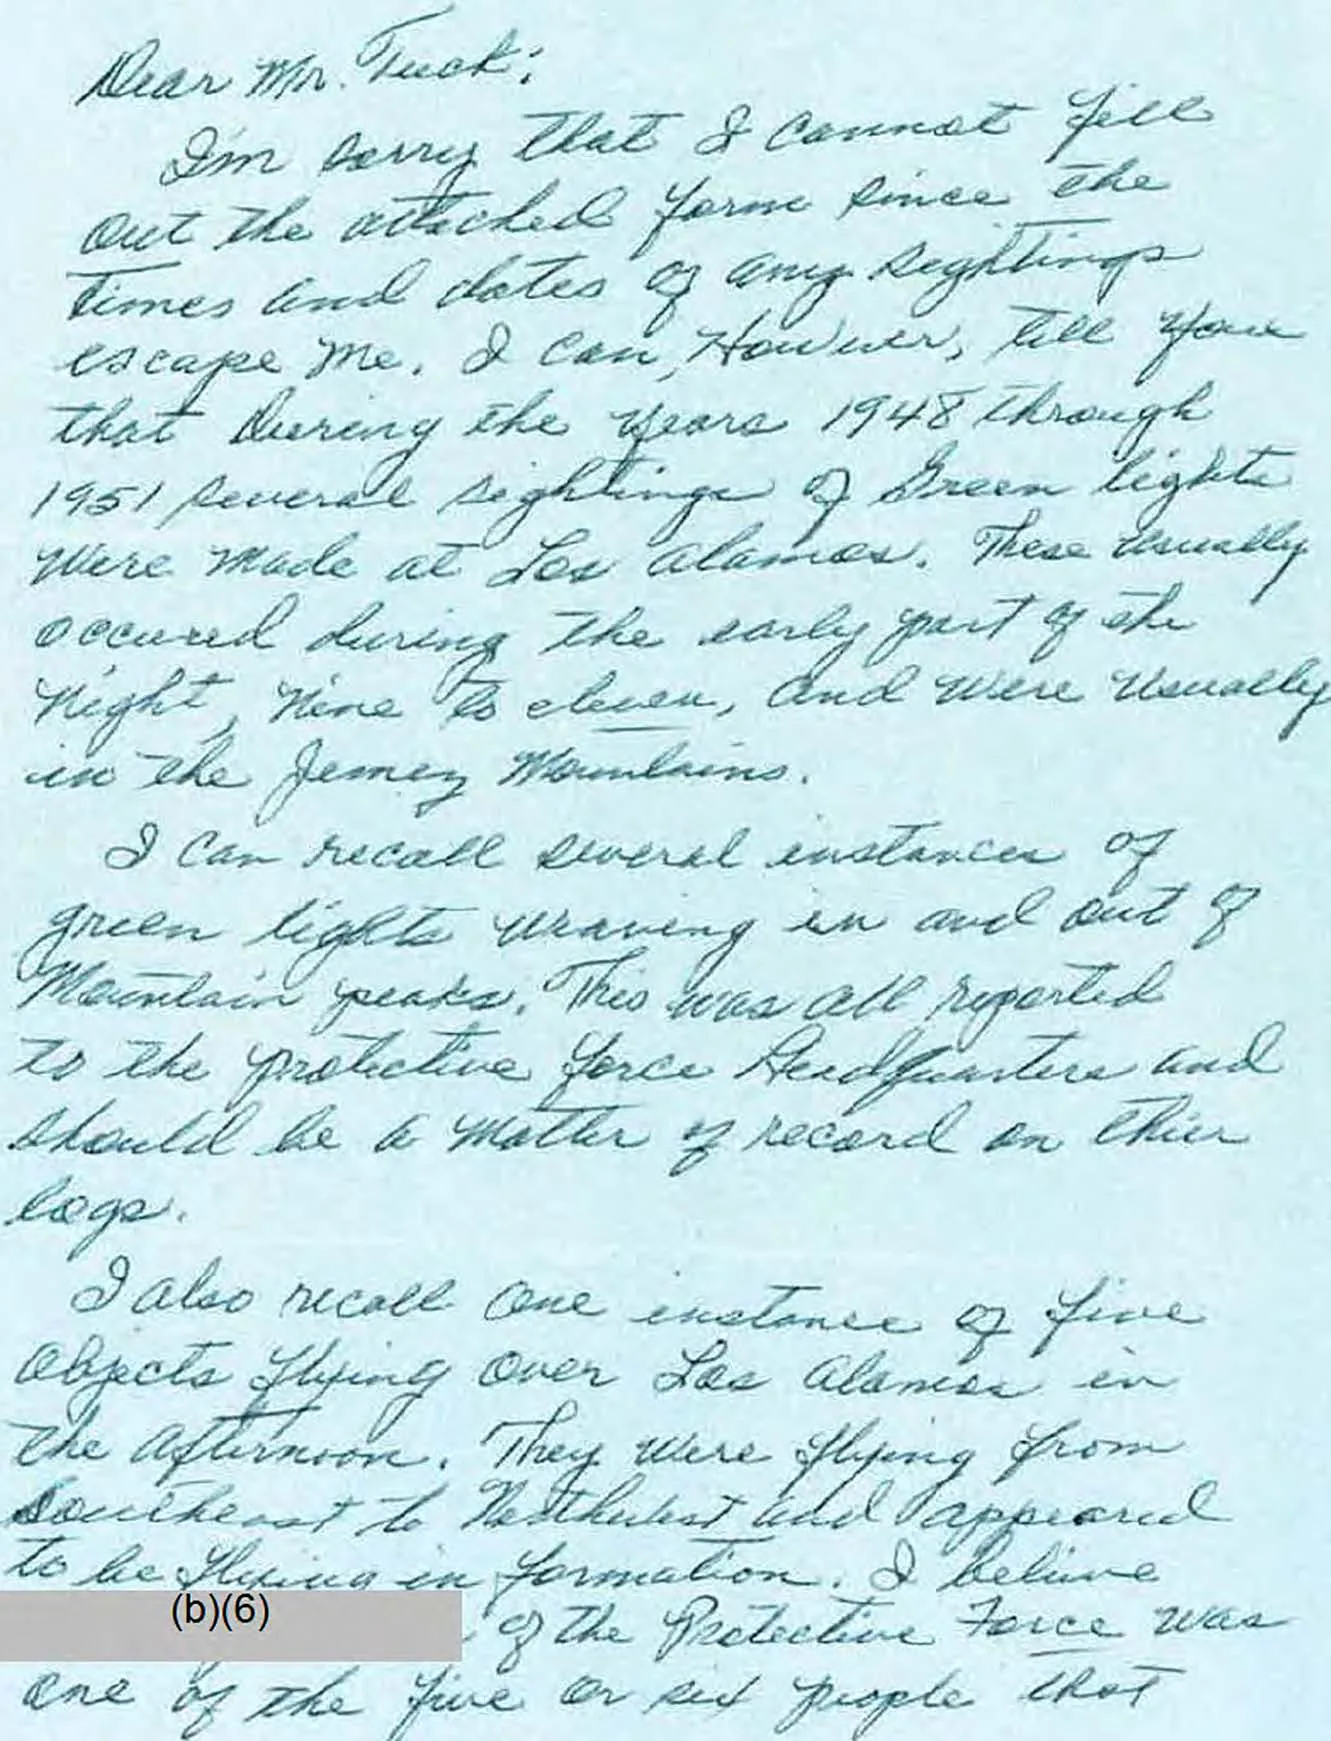 Dear Mr. Tuck:
I'm sorry that I cannot fill
out the attached form since the
times and dates of any sightings
escape me. I can, However, tell you
that During the years 1948 through
1951 several sightings of Green lights
were made at Los Alamos. These usually
occured during the early part of the
Night, Nine to eleven, and were usually
in the Jemez Mountains.
I can recall several instances of
green lights weaving in and out of
Mountain peaks. This was all reported
to the protective force Headquarters and
should be a matter of record on thier
logs.
I also recall one instance of five
objects flying over Los Alamos in
the Afternoon. They were flying from
Southeast to Northwest and appeared
to be flying in formation. I believe
(b)(6) of the Protective Force was
one of the five or six people that